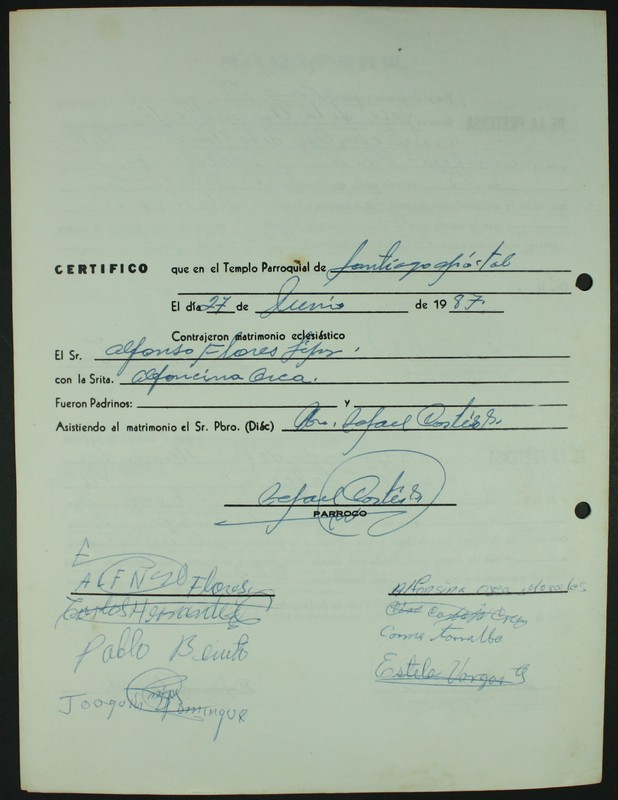 CERTIFICO que en el Templo Parroquial de Santiago Apóstol
El día 27 de Junio de 1987.
Contrajeron matrimonio eclesiástico
El Sr. Alfonso Flores
con la Srita. Alfoncina Orea.
Fueron Padrinos: y
Asistiendo al matrimonio el Sr. Pbro. (Diác) Pbro. Rafael Cortés
Rafael Cortés
PARROCO
ALFNZO Flores
Alfonsina Orea Morales
Carlos Hernandez
Pablo Benito
Estela Vargas
Joaquin Dominque